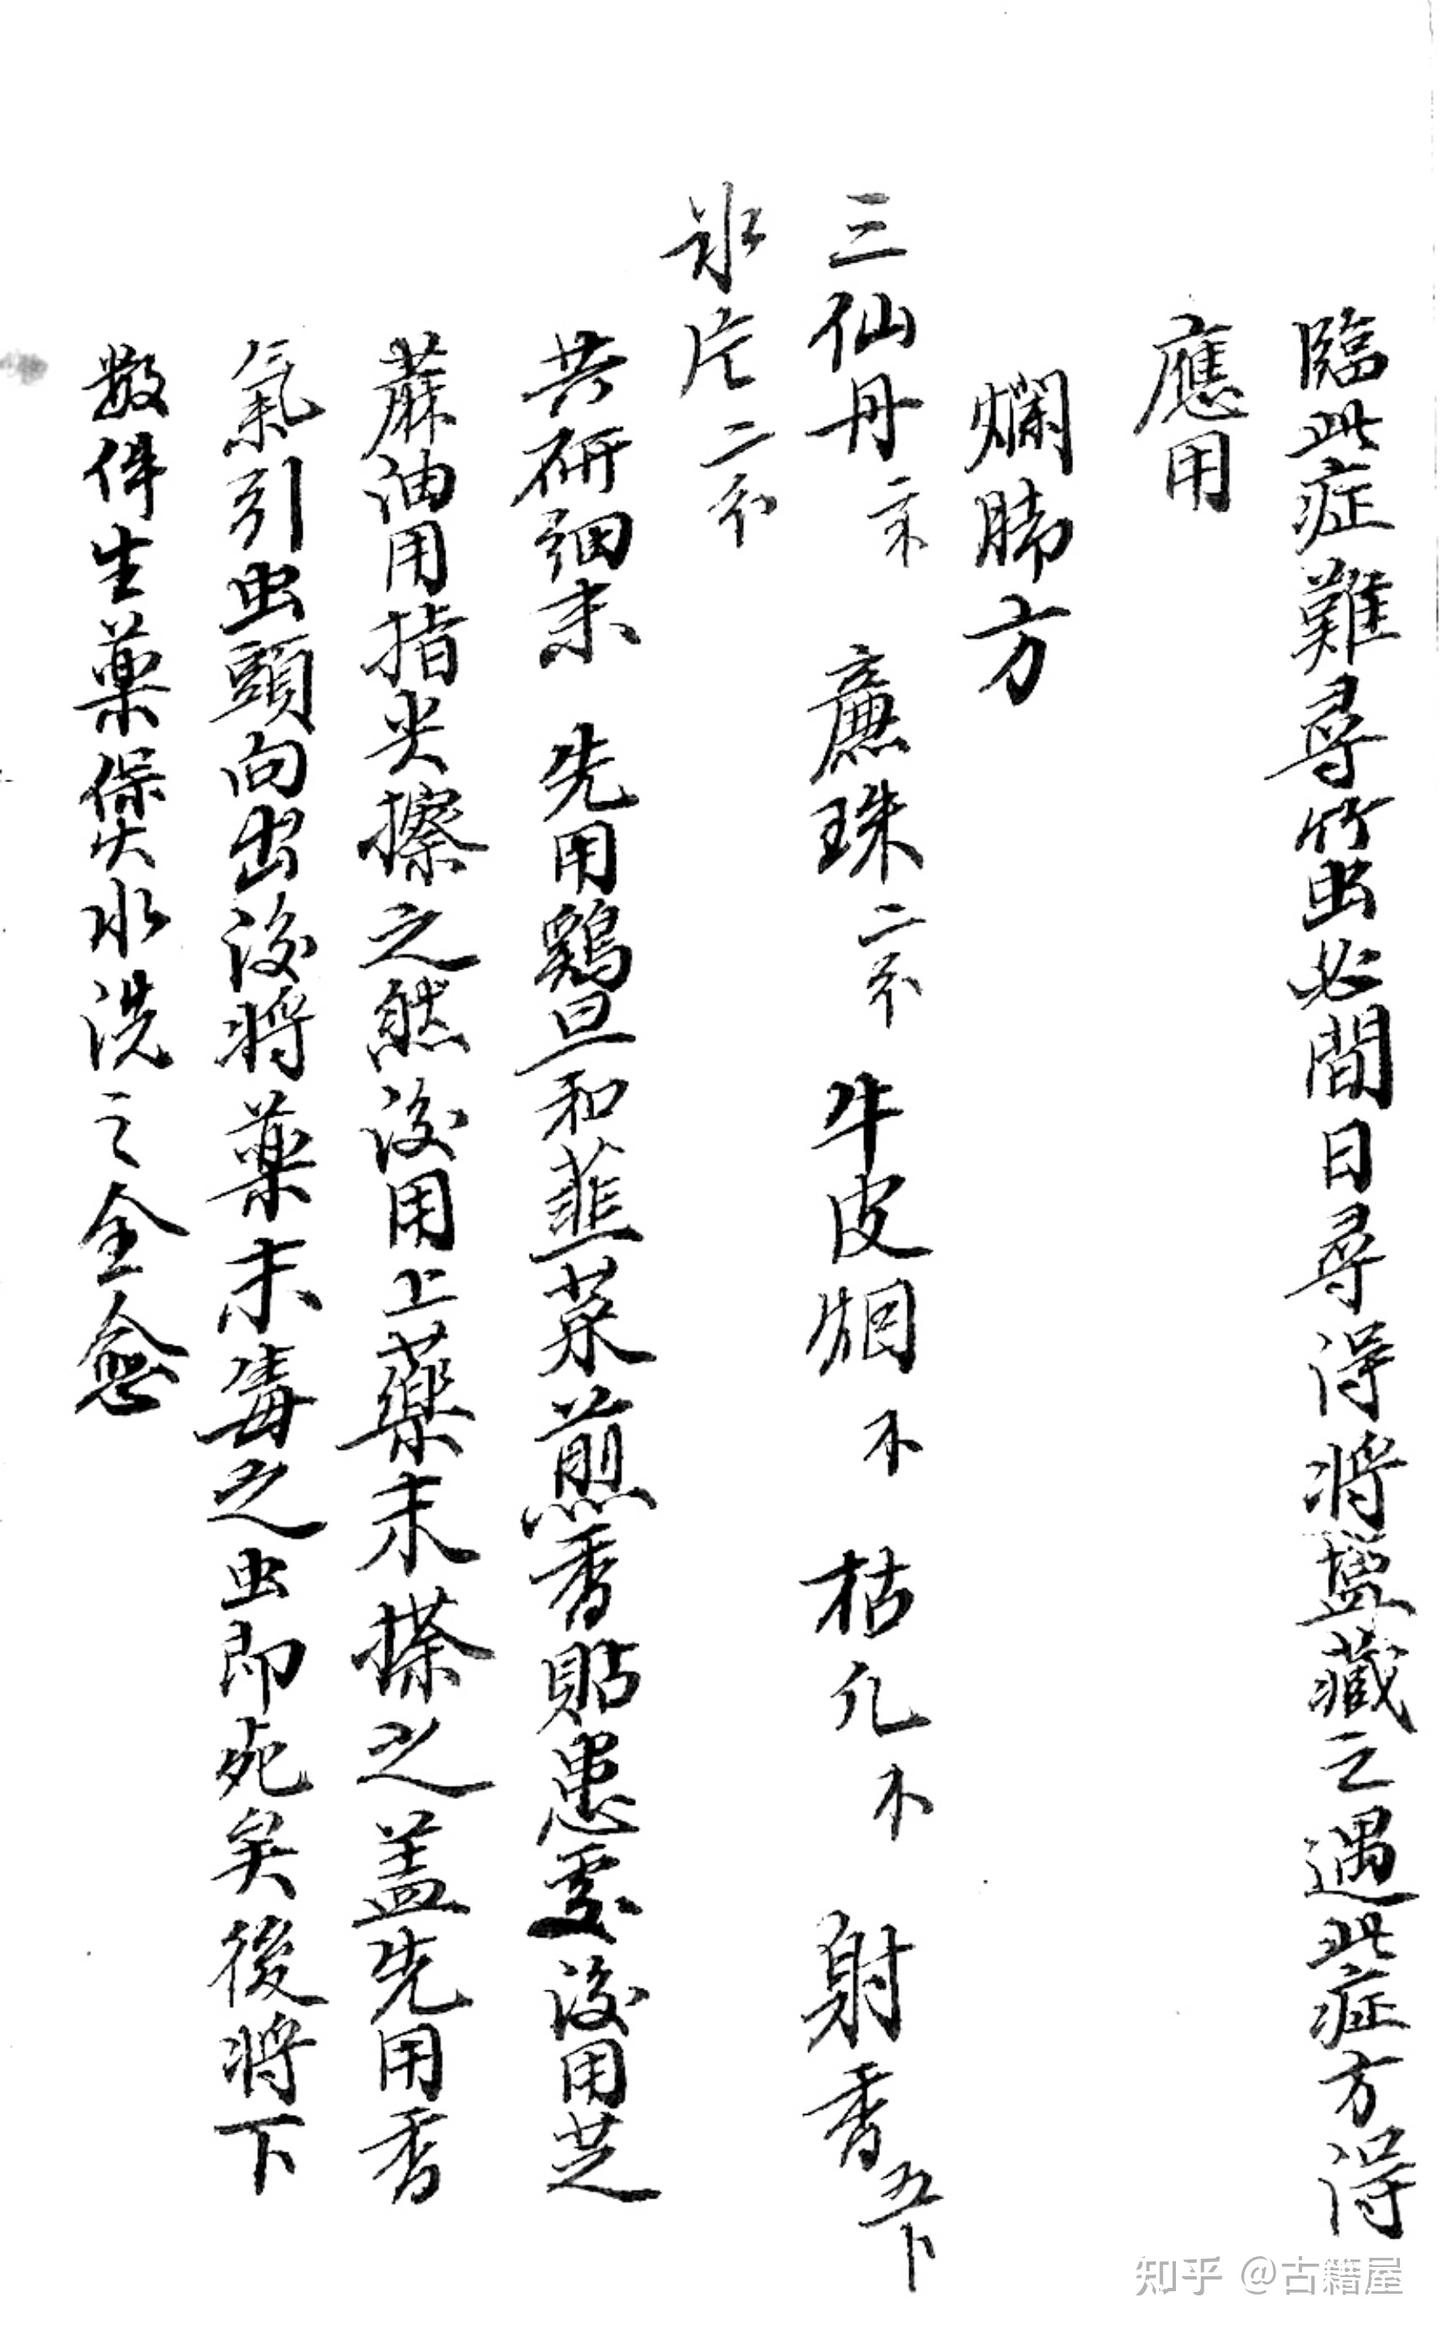 臨此症難尋竹虫必間日尋得將塩藏之遇此症方得
應用
爛肺方
三仙丹 二不 廉珠二不 牛皮烟不 枯凢不 射香五卜
氷片二不
共研細末 先用鷄旦和韮菜煎香貼患處後用芝
蔴油用指尖擦之然後用上藥末搽之盖先用香
氣引虫頭向出後將藥末毒之虫即死矣後將下
数件生藥煲水洗之全愈
知乎 @古籍屋